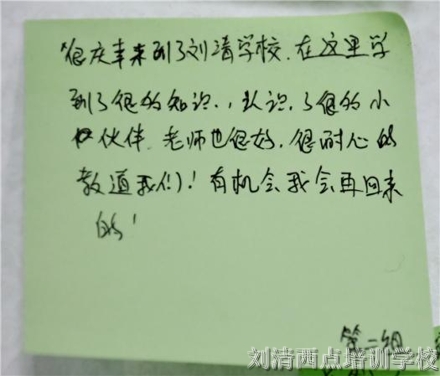 很庆幸来到了刘清学校.在这里学
到了很多的知识.,认识.了很多的小
伙伴.老师也很好.很耐心的
教道我们!有机会我会再回来
的!
第二组
刘清西点培训学校